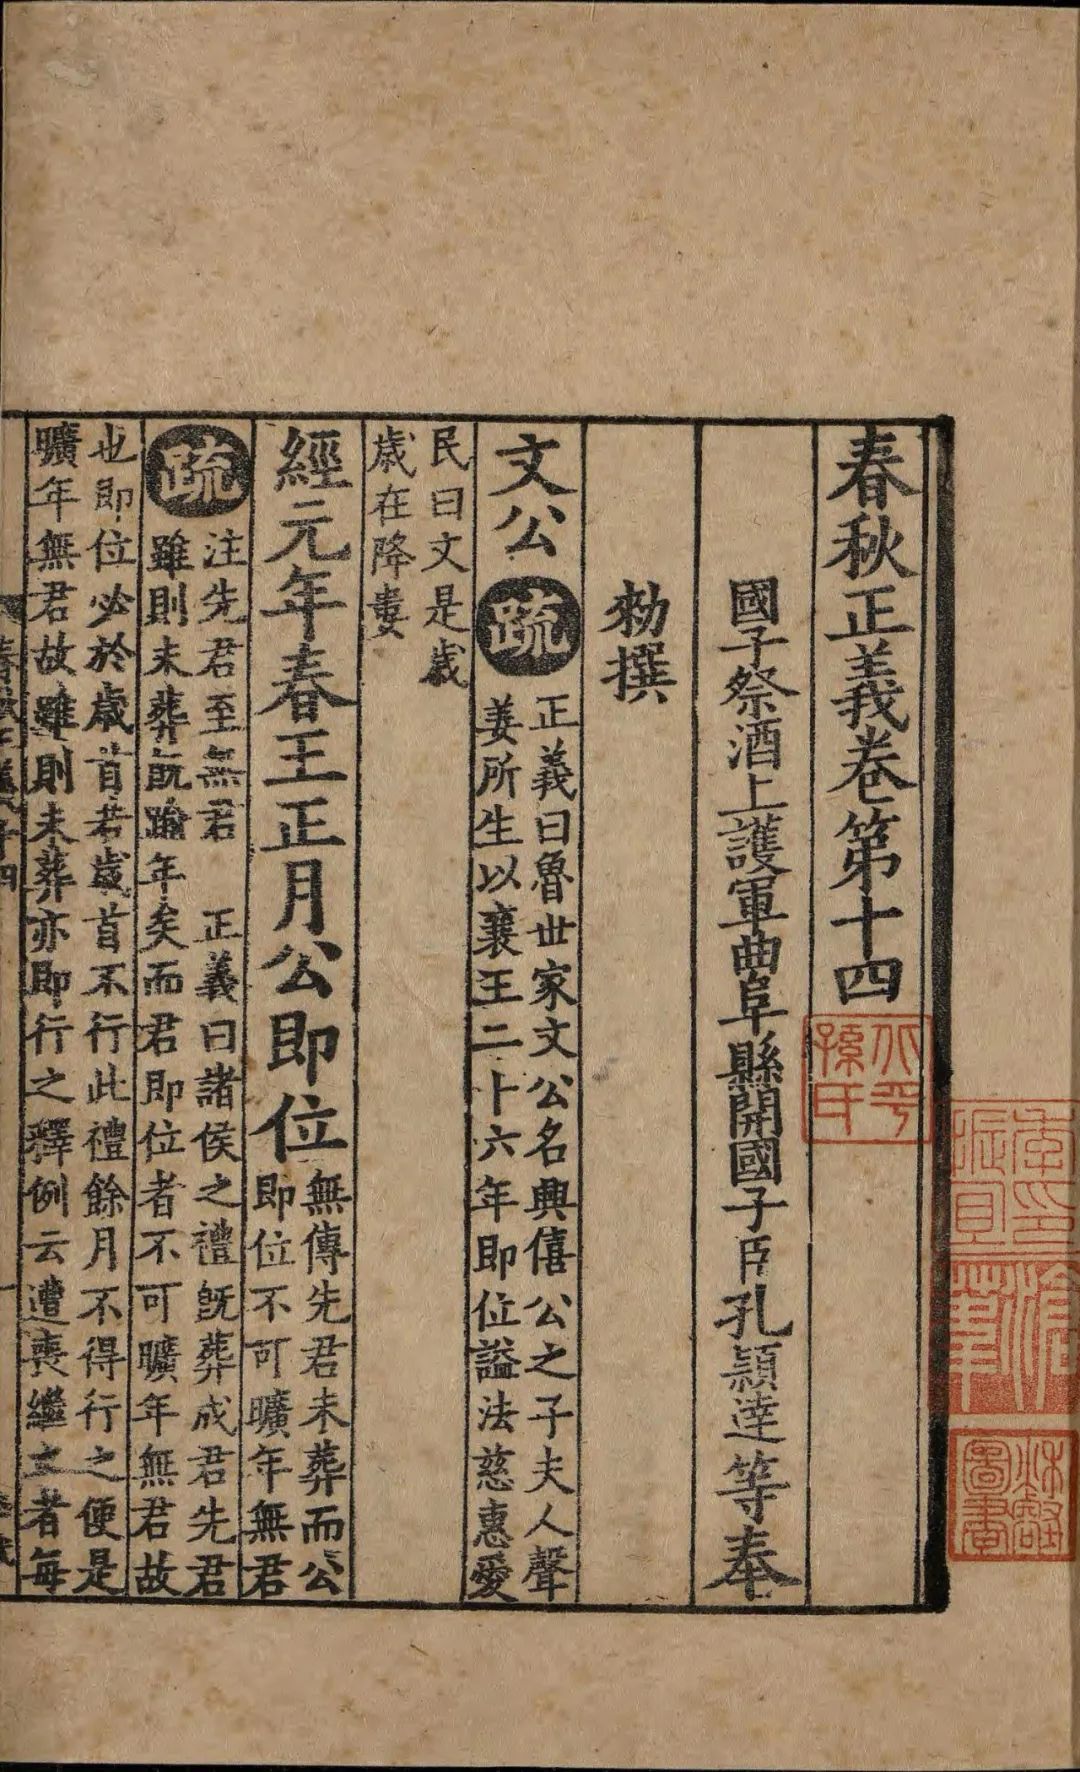 春秋正義卷第十四
國子祭酒上護軍曲阜縣開國子臣孔穎達等奉
勑撰
文公
疏
正義曰魯世家文公名興僖公之子夫人聲
姜所生以襄王二十六年即位謚法慈惠愛
民曰文是歲
歲在降婁
經元年春王正月公即位
無傳先君未葬而公
即位不可曠年無君
疏
注先君至無君 正義曰諸侯之禮旣葬成君先君
雖則未葬旣踰年矣而君即位者不可曠年無君故
也即位必於歲首若歲首不行此禮餘月不得行之便是
曠年無君故雖則未葬亦即行之釋例云遭喪繼立者每
春秋正義十四
一
孫氏
圖書